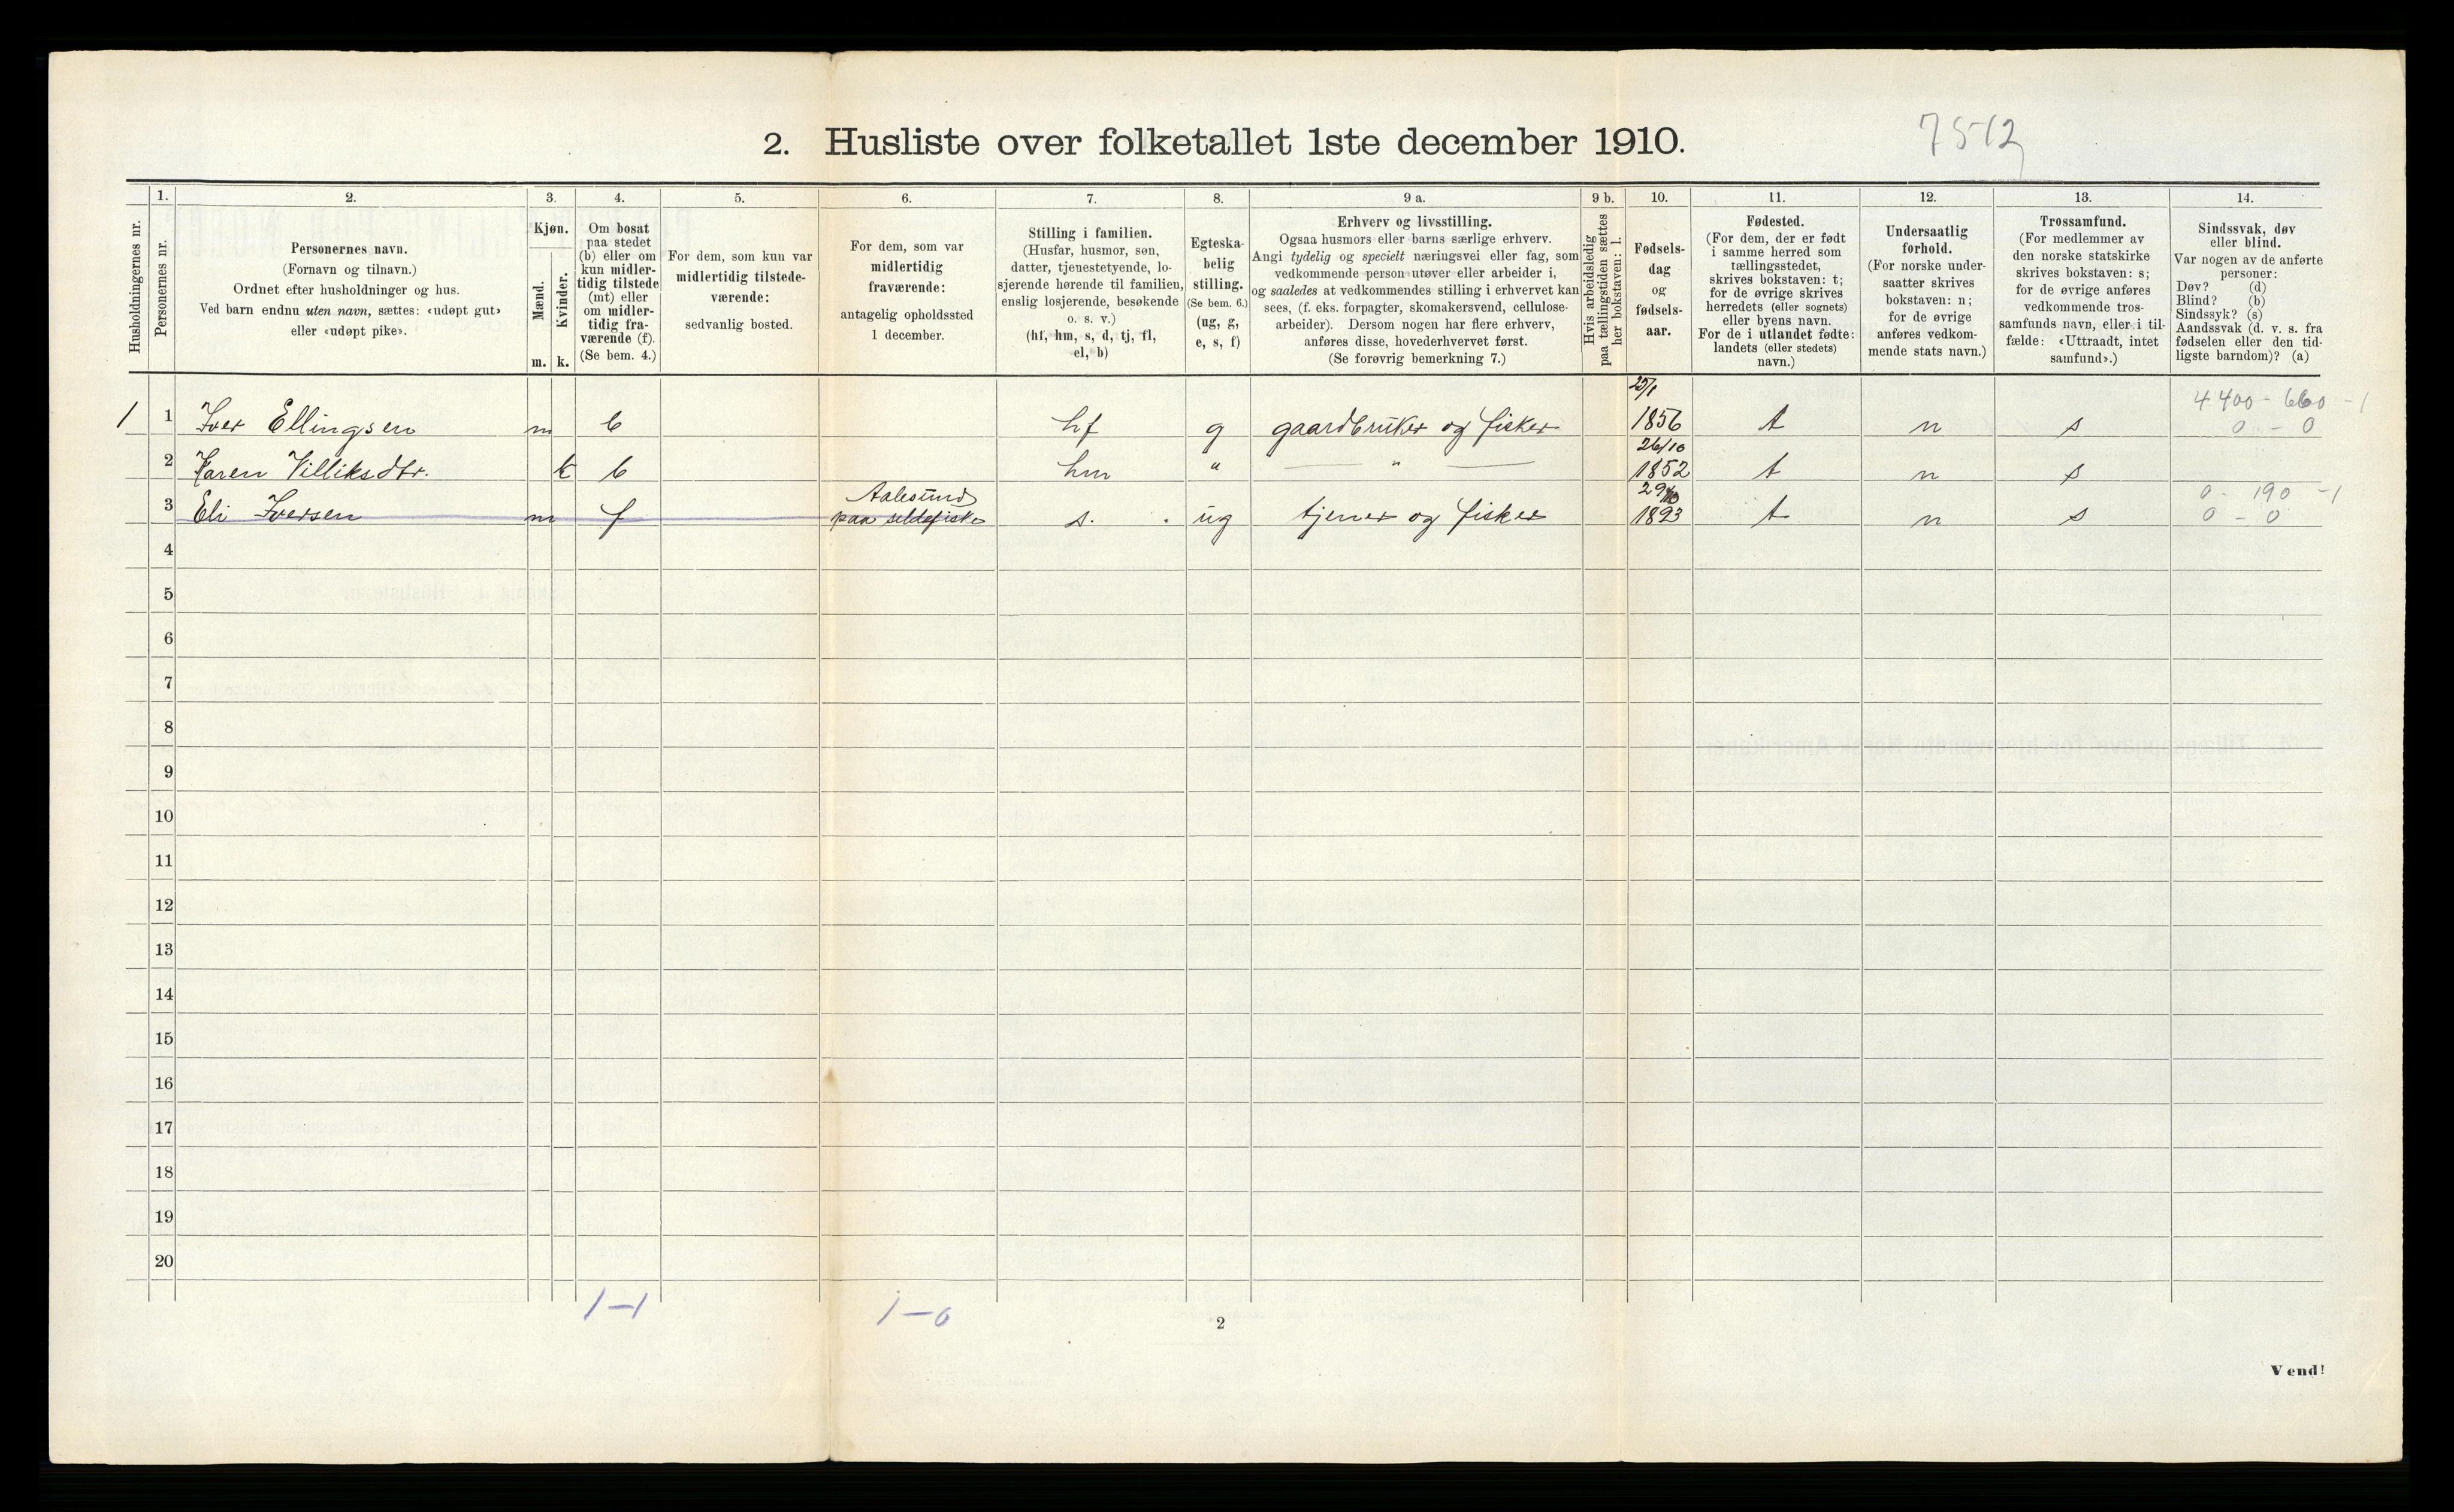 7512
2. Husliste over folketallet 1ste december 1910.
1. 2. 3. 4. 5. 6. 7. 8. 9 a. 9 b. 10. 11. 12. 13. 14.
Husholdningernes nr.
Personernes nr.
Personernes navn.
(Fornavn og tilnavn.)
Ordnet efter husholdninger og hus.
Ved barn endnu uten navn, sættes: «udøpt gut»
eller «udøpt pike».
Kjøn.
Mænd.
Kvinder.
m. k.
Om bosat
paa stedet
(b) eller om
kun midler-
tidig tilstede
(mt) eller
om midler-
tidig fra-
værende (f).
(Se bem. 4.)
For dem, som kun var
midlertidig tilstede-
værende:
sedvanlig bosted.
For dem, som var
midlertidig
fraværende:
antagelig opholdssted
1 december.
Stilling i familien.
(Husfar, husmor, søn,
datter, tjenestetyende, lo-
sjerende hørende til familien,
enslig losjerende, besøkende
o. s. v.)
(hf, hm, s, d, tj, fl,
el, b)
Egteska-
belig
stilling.
(Se bem. 6.)
(ug, g,
e, s, f)
Erhverv og livsstilling.
Ogsaa husmors eller barns særlige erhverv.
Angi tydelig og specielt næringsvei eller fag, som
vedkommende person utøver eller arbeider i,
og saaledes at vedkommendes stilling i erhvervet kan
sees, (f. eks. forpagter, skomakersvend, cellulose-
arbeider). Dersom nogen har flere erhverv,
anføres disse, hovederhvervet først.
(Se forøvrig bemerkning 7.)
Hvis arbeidsledig
paa tællingstiden sættes
her bokstaven: l.
Fødsels-
dag
og
fødsels-
aar.
Fødested.
(For dem, der er født
i samme herred som
tællingsstedet,
skrives bokstaven: t;
for de øvrige skrives
herredets (eller sognets)
eller byens navn.
For de i utlandet fødte:
landets (eller stedets)
navn.)
Undersaatlig
forhold.
(For norske under-
saatter skrives
bokstaven: n;
for de øvrige
anføres vedkom-
mende stats navn.)
Trossamfund.
(For medlemmer av
den norske statskirke
skrives bokstaven: s;
for de øvrige anføres
vedkommende tros-
samfunds navn, eller i til-
fælde: «Uttraadt, intet
samfund».)
Sindssvak, døv
eller blind.
Var nogen av de anførte
personer:
Døv? (d)
Blind? (b)
Sindssyk? (s)
Aandssvak (d. v. s. fra
fødselen eller den tid-
ligste barndom)? (a)
4400 - 660 - 1
1 1 Iver Ellingsen m b hf g gaardbruker og fisker 1856 t n s 0 - 0
26/10
2 Karen Villiksdtr. k b hm " — " — 1852 t n s
Aalesund 0 - 190 - 1
3 Eli Iversen m f paa sildefiske s. ug tjener og fisker 1893 t n s 0 - 0
4
5
6
7
8
9
10
11
12
13
14
15
16
17
18
19
20
1-1 1-0
2
Vend!